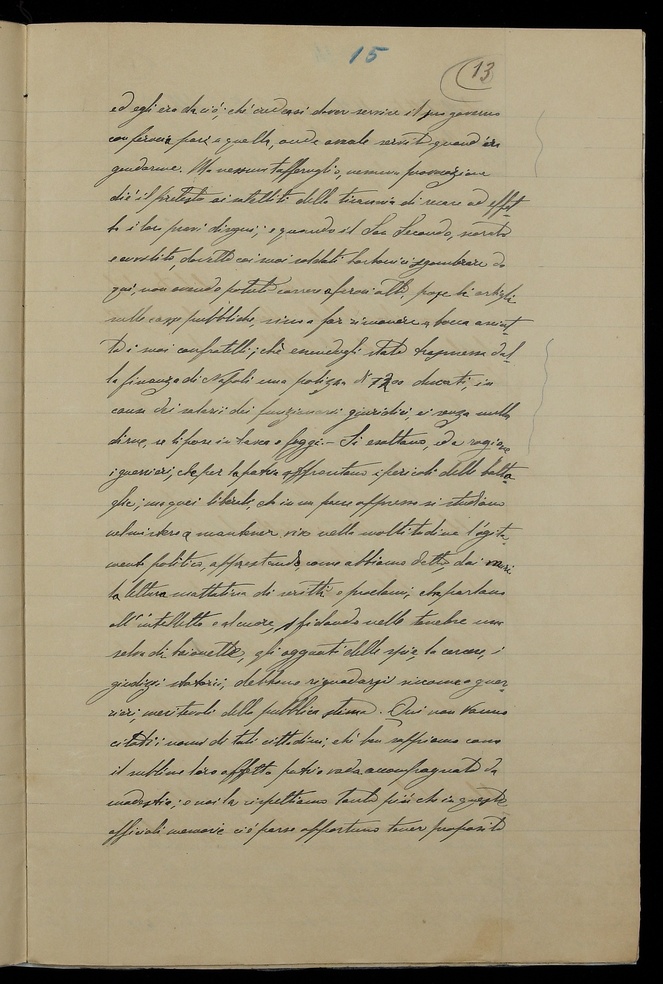 15
13
ed egli era da ciò; chè credeasi dover servire il suo governo
con ferocia pari a quella, onde avealo servito quand'era
gendarme. Ma nessun tafferuglio, nessuna provocazione
diè il pretesto ai satelliti della tirannia di recare ad effet-
to i loro pravi disegni; e quando il San Secondo,
e avvilito, dovette coi suoi soldati borbonici sgombrare da
qui, non avendo potuto correre a feroci atti, pose gli artigli
sulle casse pubbliche, sino a far rimanere a bocca asciut-
ta i suoi confratelli; chè essendogli stata trasmessa dal-
la finanza di Napoli una polizza di 1200 ducati, in
causa dei salarii dei funzionarii giuridici, ei senza nulla
dirne, se li pose in tasca e fuggì. — Si esaltano, ed a ragione
i guerrieri, che per la patria affrontano i pericoli delle batta-
glie; ma quei liberali, che in un paese oppresso si studiano
nel mistero a mantener viva nella moltitudine l'agita-
mento politico, apprestando, come abbiamo detto, dai
la lettura mattutina di scritti e proclami, che parlano
all'intelletto e al cuore, sfidando nelle tenebre una
selva di baionette, gli agguati delle spie, la carcere, i
giudizi statarii, debbono riguardarsi siccome guer-
rieri, meritevoli della pubblica stima. Qui non vanno
citati i nomi di tali cittadini, chè ben sappiamo come
il sublime loro affetto patrio vada accompagnato da
modestia; e noi la rispettiamo tanto più che in queste
officiali memorie ci è parso opportuno tener proposito